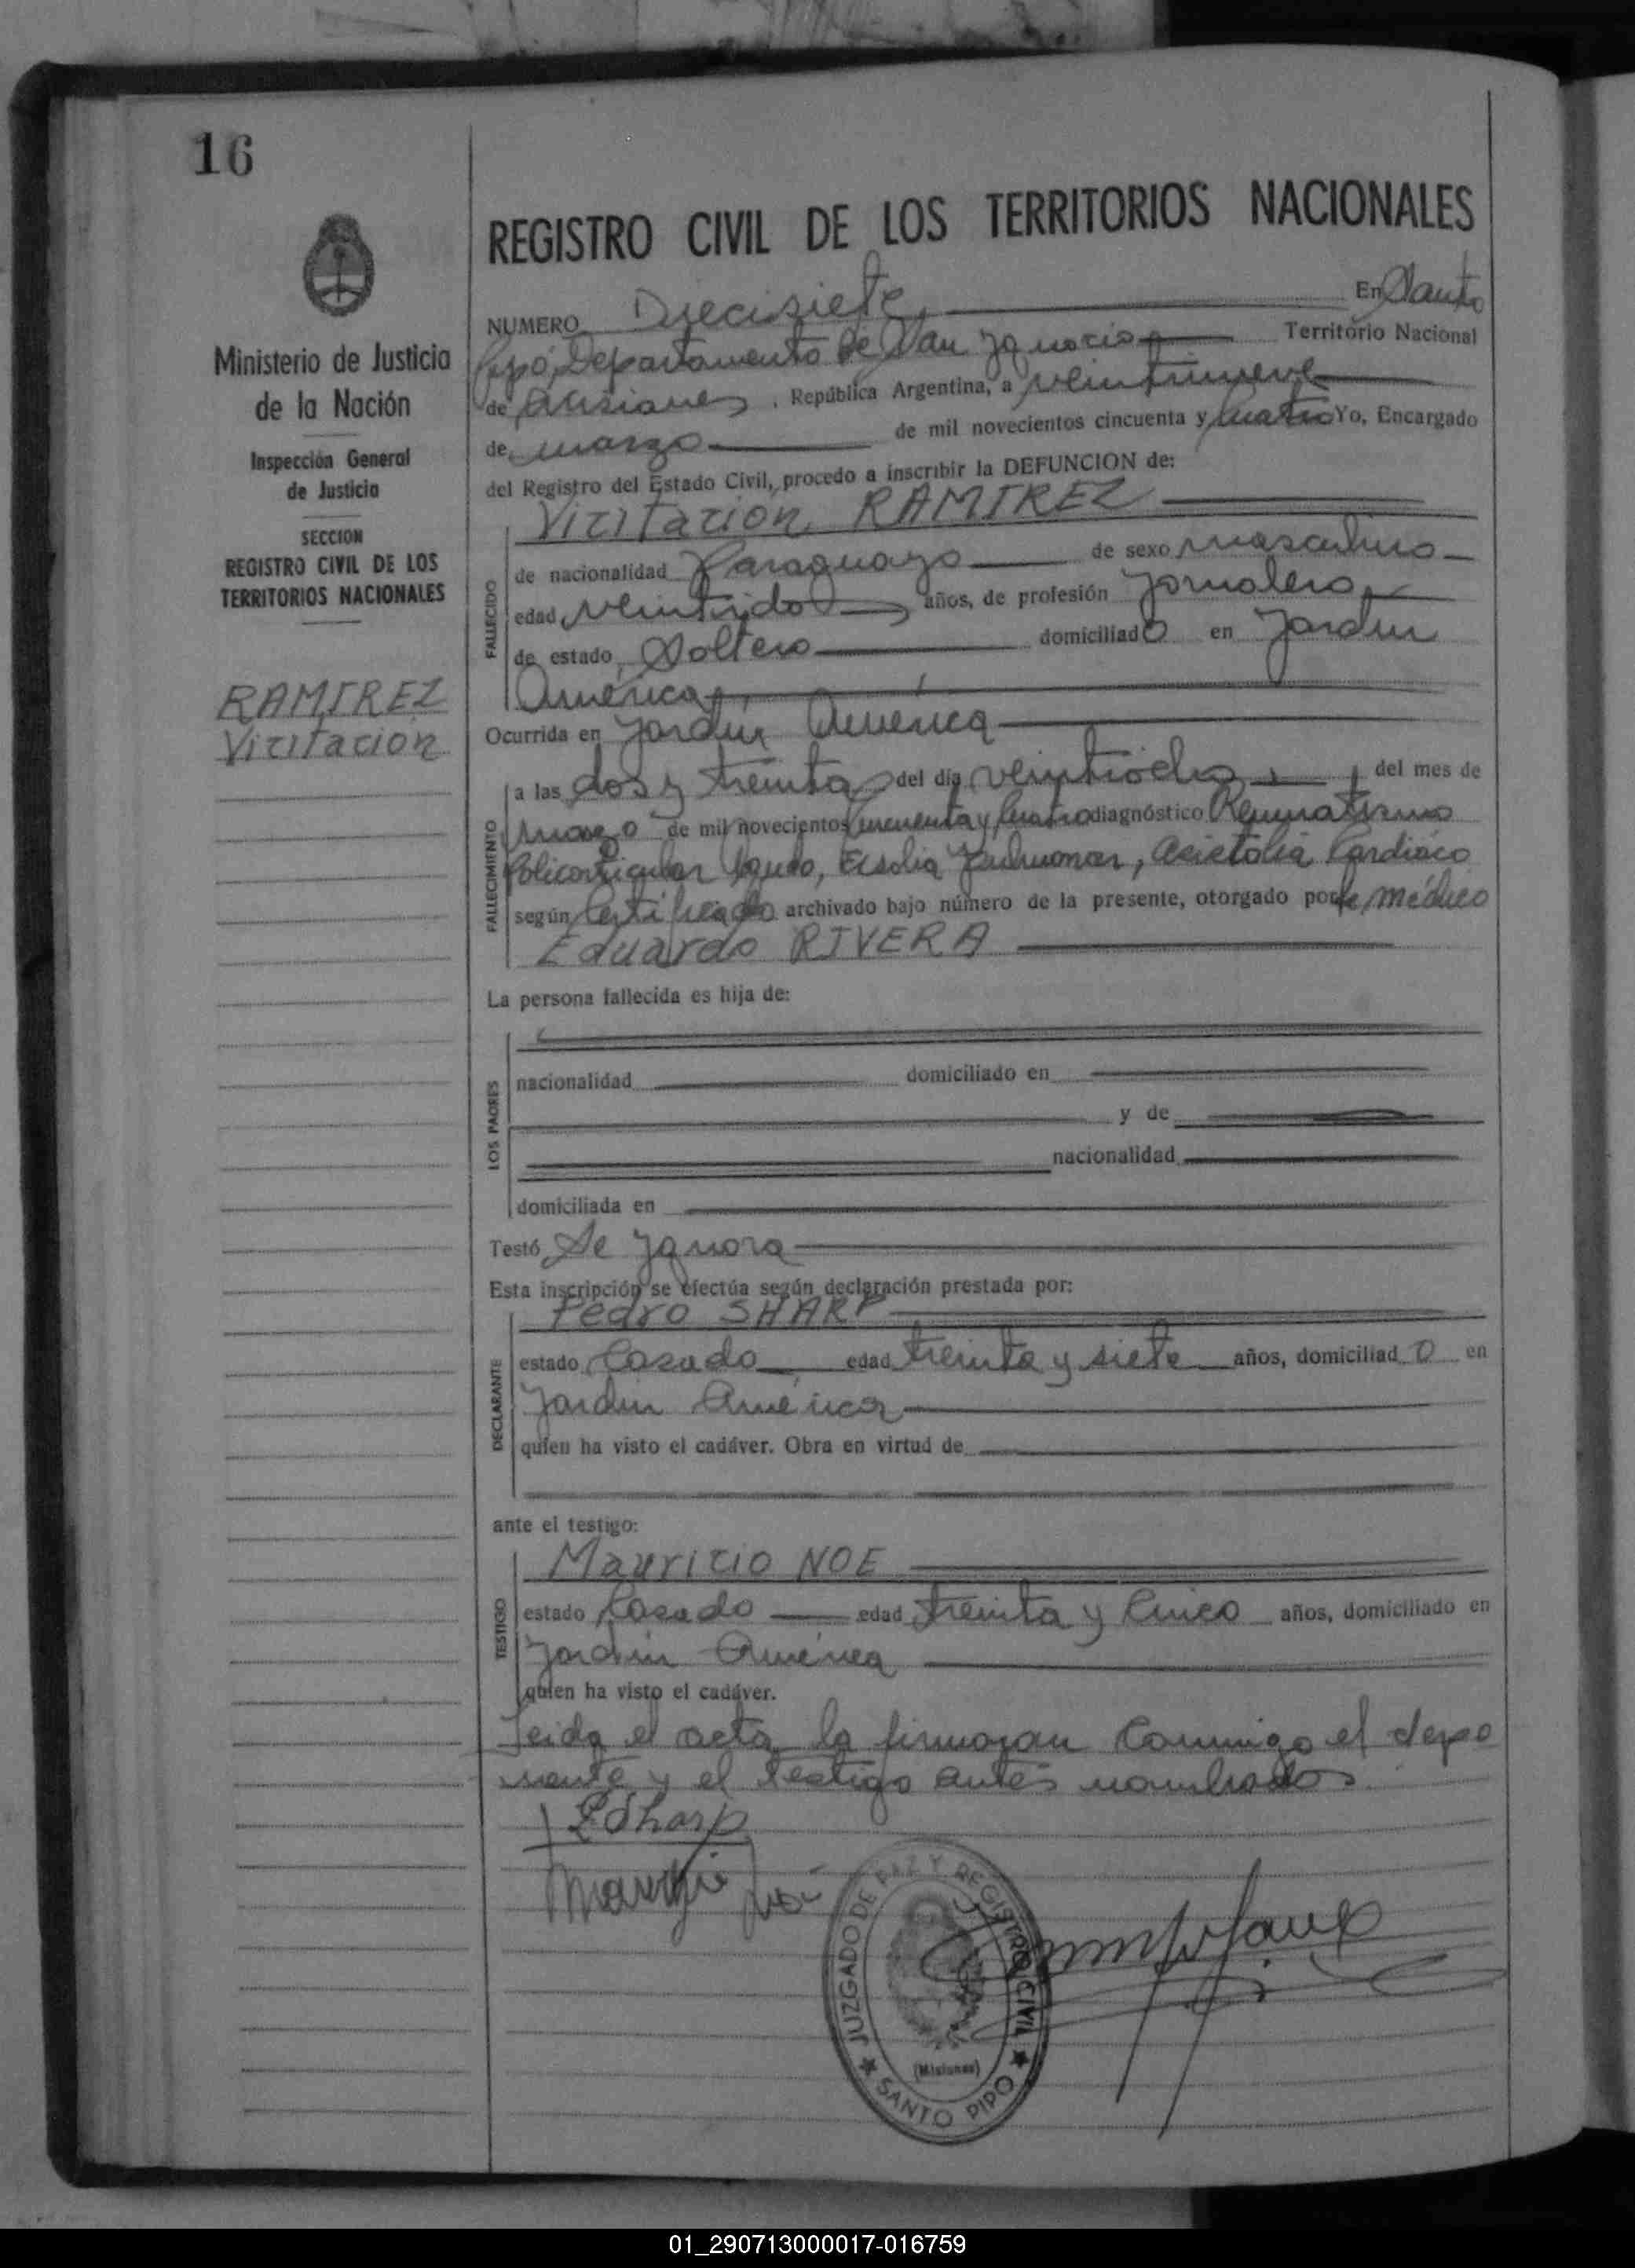 16
REGISTRO CIVIL DE LOS TERRITORIOS NACIONALES
Ministerio de Justicia
de la Nación
Inspección General
de Justicia
SECCION
REGISTRO CIVIL DE LOS
TERRITORIOS NACIONALES
RAMIREZ
Vizitacion
NUMERO Diecisiete En Santo
Pipó, Departamento de San Ignacio Territorio Nacional
de Misiones, República Argentina, a veintinueve
de marzo de mil novecientos cincuenta y Cuatro Yo, Encargado
del Registro del Estado Civil, procedo a inscribir la DEFUNCION de:
Vizitacion RAMIREZ
FALLECIDO
de nacionalidad Paraguayo de sexo masculino
edad veintidos años, de profesión Jornalero
de estado Soltero domiciliado en Jardin
América
Ocurrida en Jardin América
FALLECIMIENTO
a las dos y treinta del día veintiocho del mes de
marzo de mil novecientos cincuenta y Cuatro diagnóstico Reumatismo
Policarticular Agudo, Pulmonar, Cardiaco
según Certificado archivado bajo número de la presente, otorgado por el médico
Eduardo RIVERA
La persona fallecida es hija de:
LOS PADRES
nacionalidad domiciliado en
y de
nacionalidad
domiciliada en
Testó Se Ignora
Esta inscripción se efectúa según declaración prestada por:
Pedro SHARP
DECLARANTE
estado Casado edad treinta y siete años, domiciliado en
Jardin América
quien ha visto el cadáver. Obra en virtud de
ante el testigo:
Mauricio NOE
TESTIGO
estado Casado edad treinta y Cinco años, domiciliado en
Jardin América
quien ha visto el cadáver.
Leida el acta la firmaran Conmigo el depo
nente y el testigo antes nombrados
P Sharp
JUZGADO DE PAZ Y REGISTRO CIVIL
(Misiones)
SANTO PIPO
01_290713000017-016759